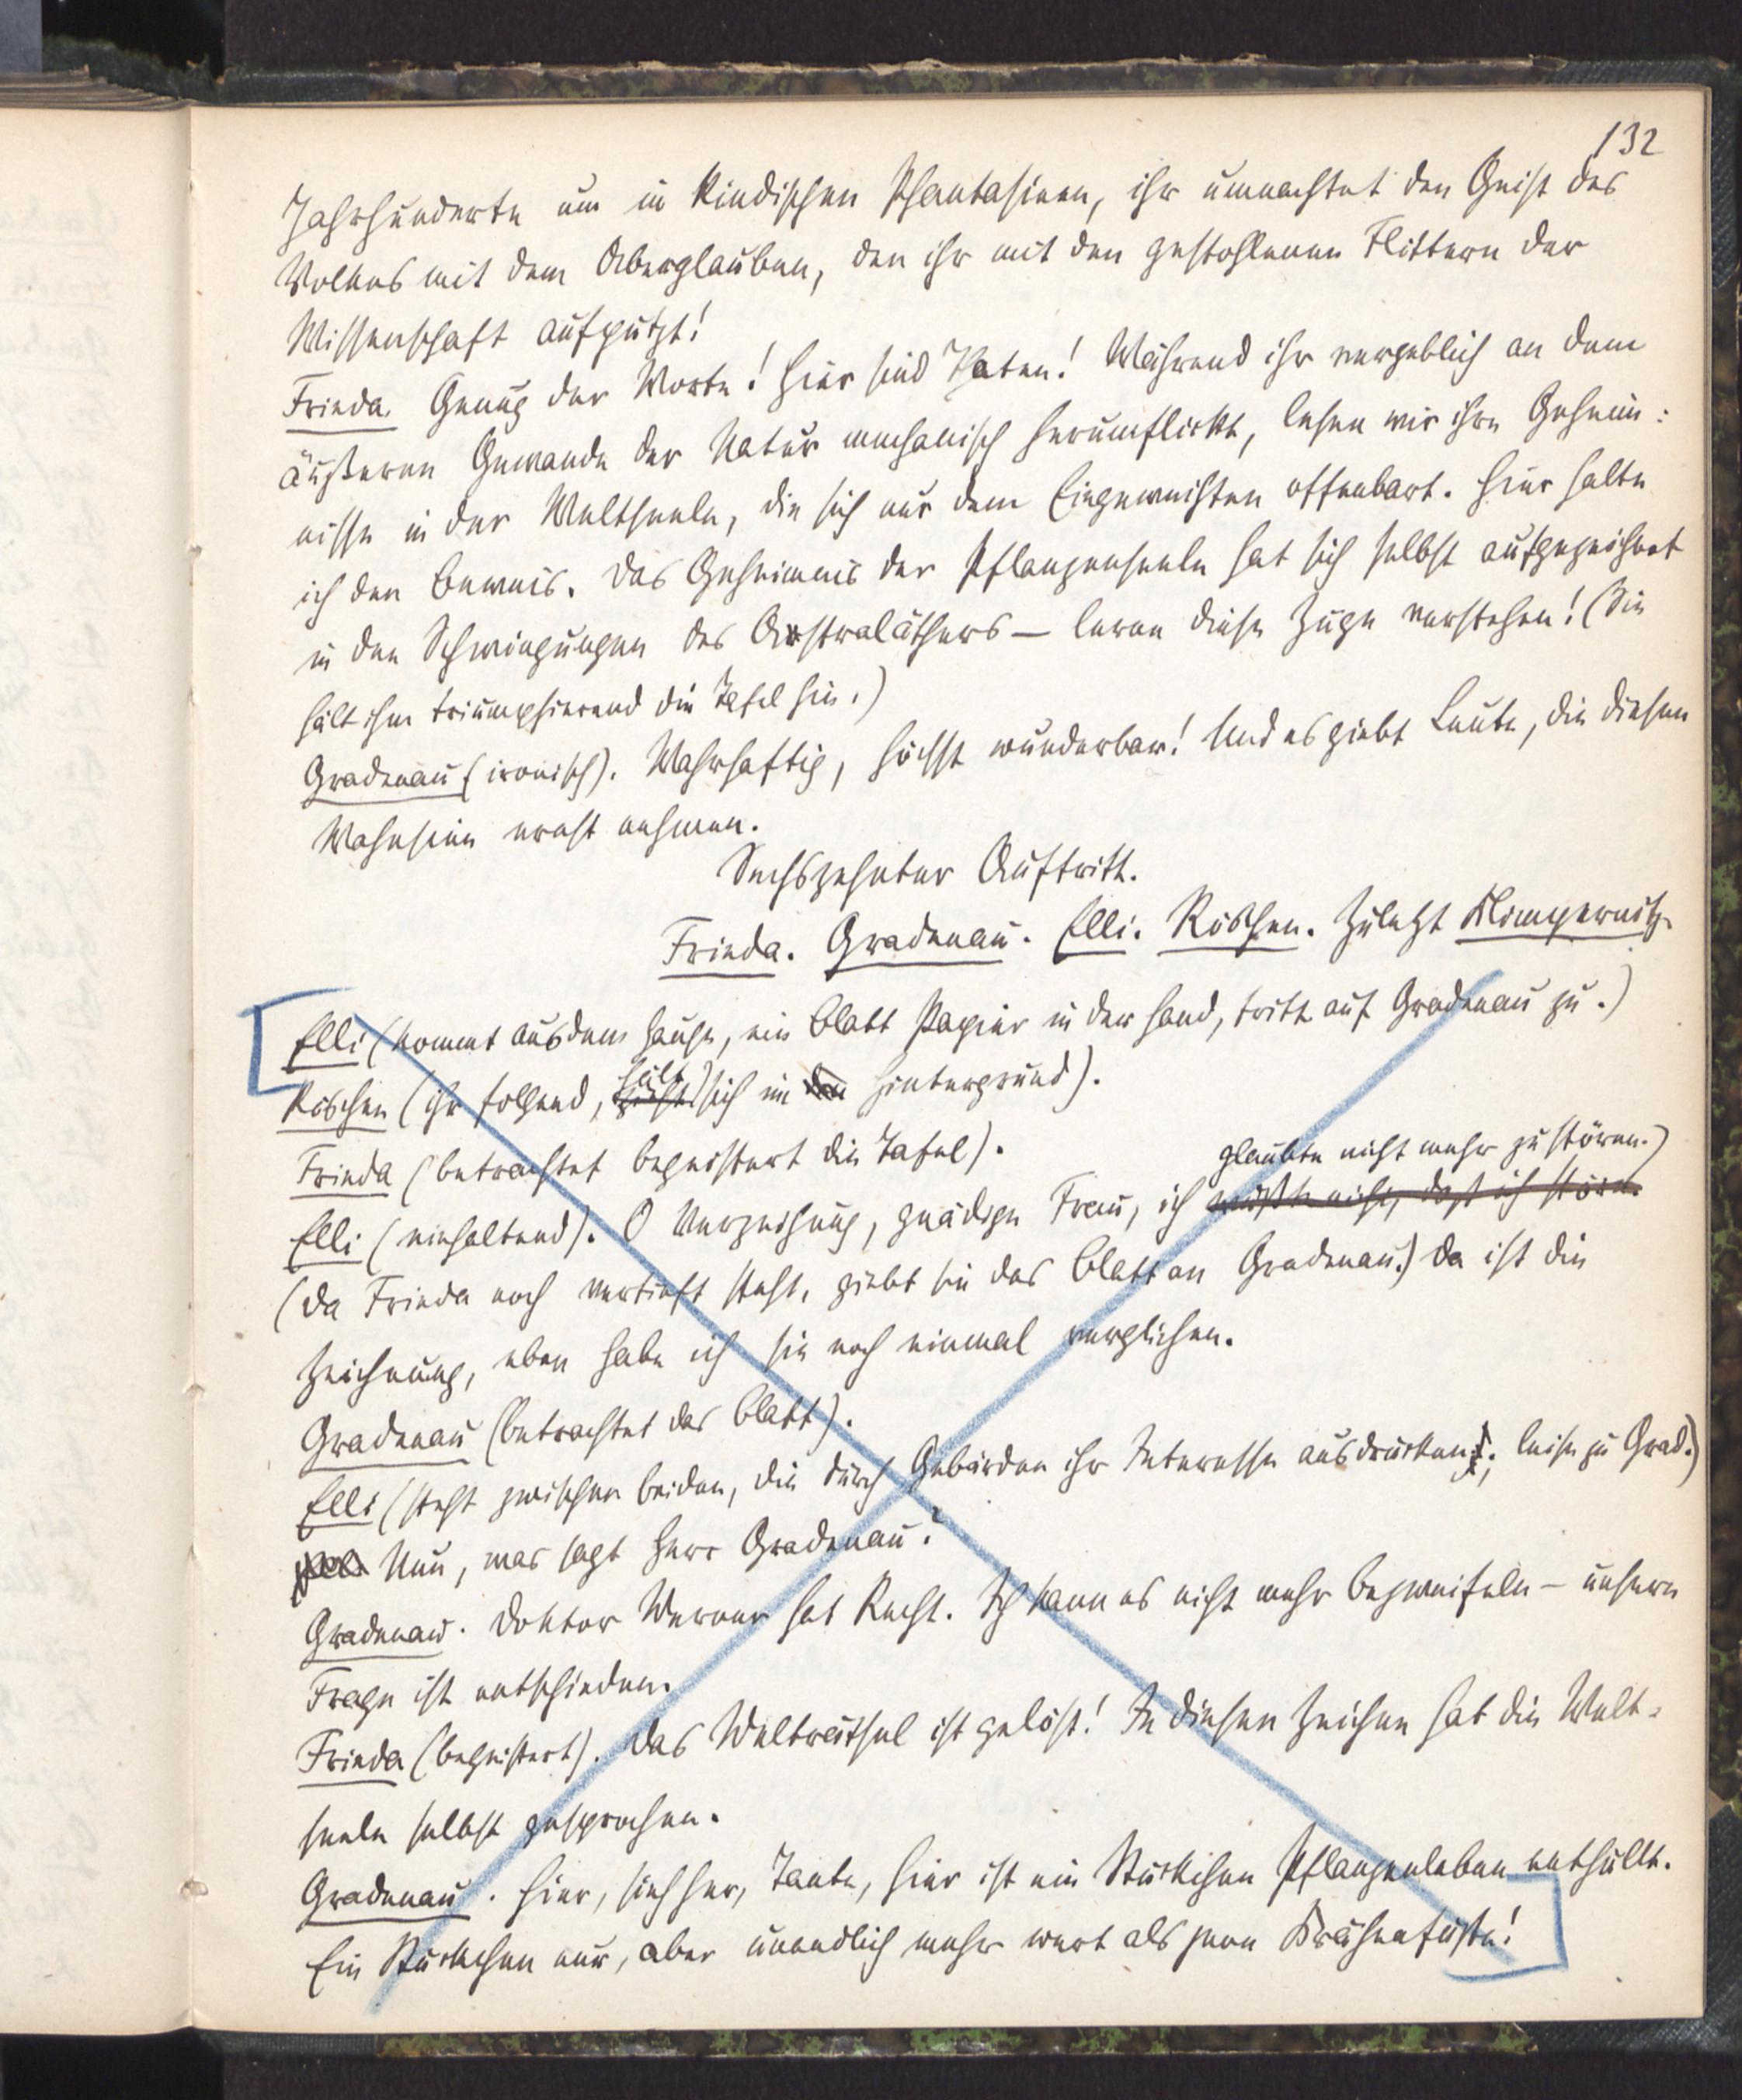 132
Jahrhunderte um in kindischen Phantasieen, ihr umnachtet den Geist des
Volkes mit dem Aberglauben, den ihr mit den gestohlenen Flittern der
Wissenschaft aufputzt!
Frieda. Genug der Worte! Hier sind Thaten! Während ihr vergeblich an dem
äußeren Gewande der Natur mechanisch herumflickt, lesen wir ihre Geheim:
nisse in der Weltseele, die sich nur dem Eingeweihten offenbart. Hier halte
ich den Beweis. Das Geheimnis der Pflanzenseele hat sich selbst aufgezeichnet
in den Schwingungen des Astraläthers — lerne diese Züge verstehen! (Sie
hält ihm triumphierend die Tafel hin.)
Gradenau (ironisch). Wahrhaftig, höchst wunderbar! Und es giebt Leute, die diesen
Wahnsinn ernst nehmen.
Sechszehnter Auftritt.
Frieda. Gradenau. Elli. Röschen. Zuletzt Klimpernitz.
Elli (kommt aus dem Hause, ein Blatt Papier in der Hand, tritt auf Gradenau zu.)
hält
Röschen (ihr folgend, zieht) sich im den Hintergrund).
Frieda (betrachtet begeistert die Tafel).
glaubte nicht mehr zu stören.)
Elli (einhaltend). O Verzeihung, gnädige Frau, ich wußte nicht, daß ich störe.
(Da Frieda noch vertieft steht, giebt sie das Blatt an Gradenau.) Da ist die
Zeichnung, eben habe ich sie noch einmal verglichen.
Gradenau (betrachtet das Blatt).
Elli (steht zwischen beiden, die durch Gebärden ihr Interesse ausdrücken; leise zu Grad.)
Nun, was sagt Herr Gradenau?
Gradenau. Doktor Werner hat Recht. Ich kann es nicht mehr bezweifeln — unsere
Frage ist entschieden.
Frieda (begeistert). Das Welträtsel ist gelöst! In diesen Zeichen hat die Welt-
seele selbst gesprochen.
Gradenau. Hier, sieh her, Tante, hier ist ein Stückchen Pflanzenleben enthüllt.
Ein Stückchen nur, aber unendlich mehr wert als jene Krähenfüße!